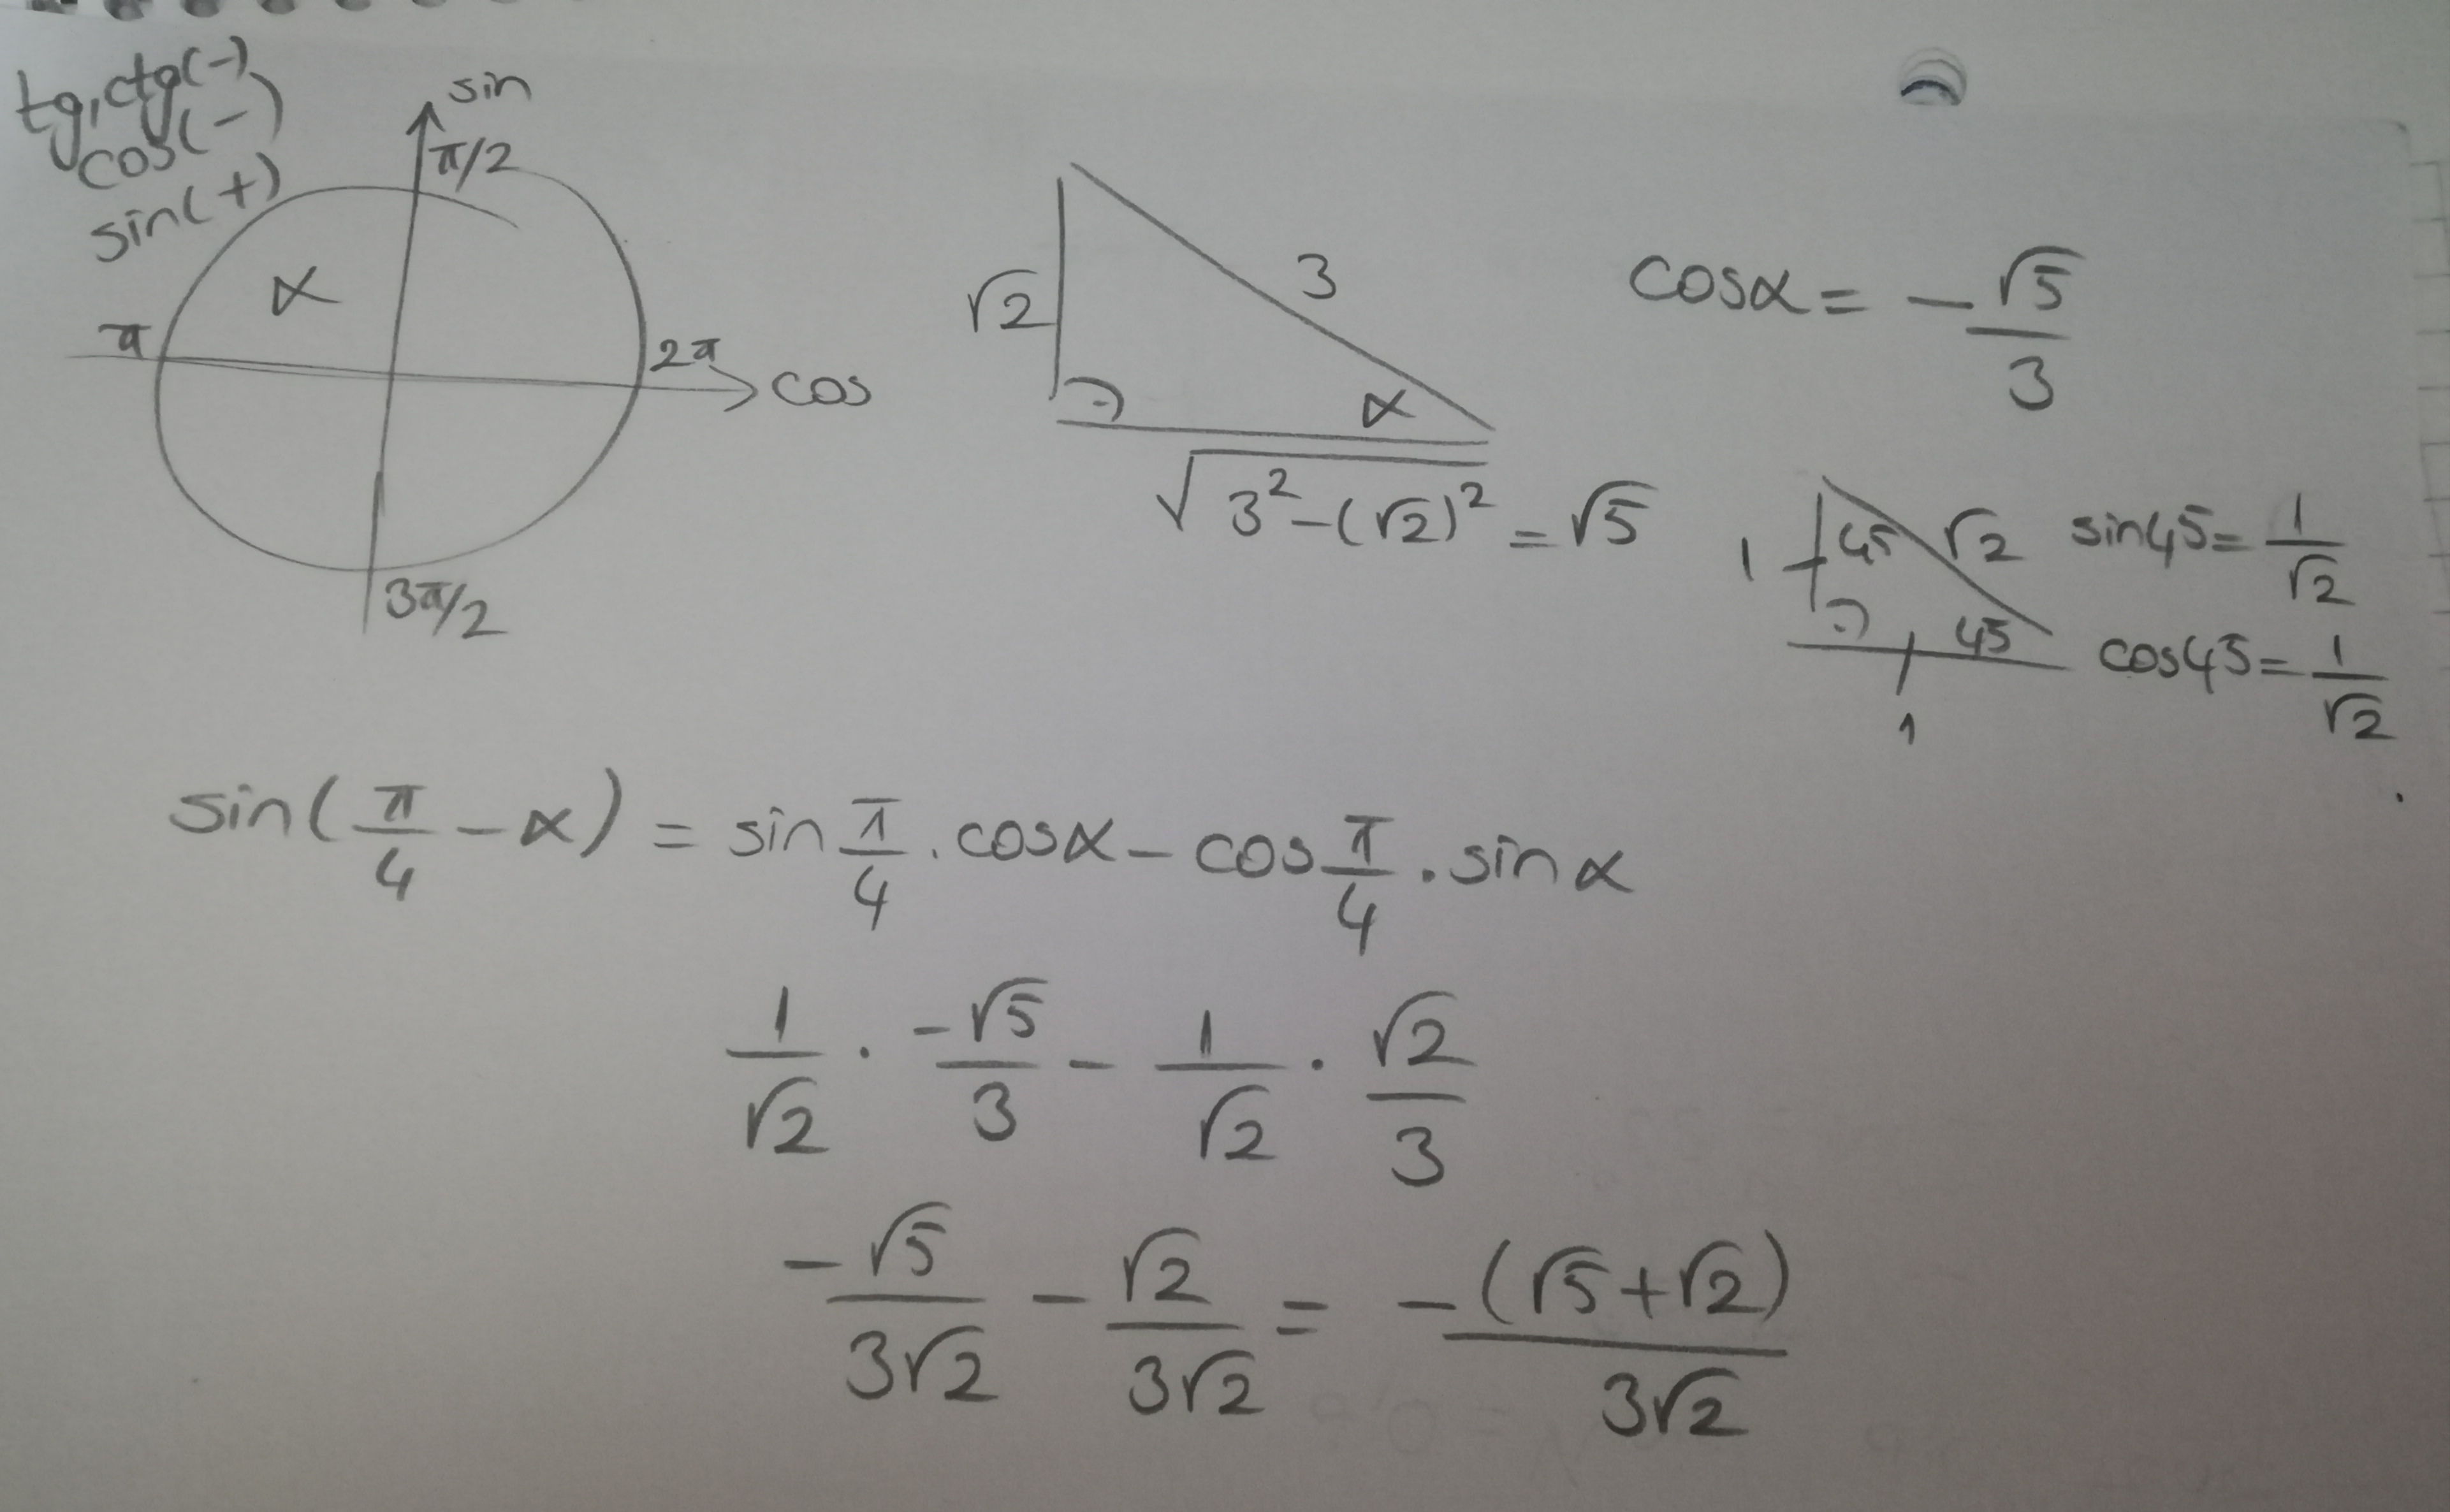 tg,ctg(-)
cos(-)
sin(+)
sin
π/2
α
π
2π
cos
3π/2
√2
3
α
√(3² - (√2)²) = √5
cosα = -√5/3
1
45
√2
45
1
sin45 = 1/√2
cos45 = 1/√2
sin(π/4 - α) = sin π/4 . cosα - cos π/4 . sin α
1/√2 . -√5/3 - 1/√2 . √2/3
-√5/3√2 - √2/3√2 = -(√5+√2)/3√2